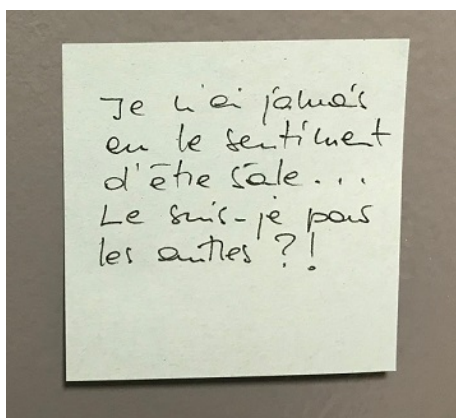 Je n'ai jamais
eu le sentiment
d'être sale...
Le suis-je pour
les autres ?!